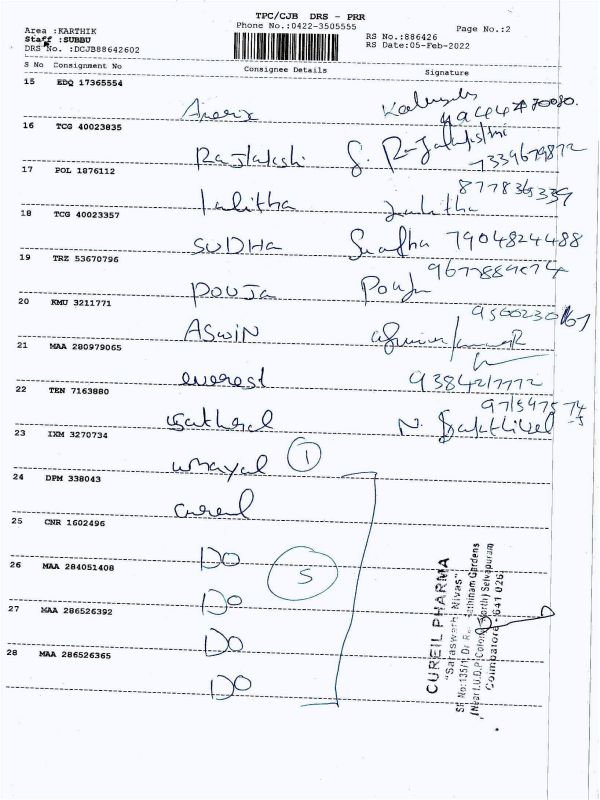 TPC/CJB DRS - PRR
Area :KARTHIK
Phone No.:0422-3505555
Page No.:2
Staff :SUBBU
RS No.:886426
DRS No. :DCJB88642602
RS Date:05-Feb-2022
S No Consignment No Consignee Details Signature
15 EDQ 17365554
16 TCG 40023835
Rajlakshi
7339679872
17 POL 1876112
Lalitha Lalitha
18 TCG 40023357
SUDHA Sudha 7904824488
19 TRZ 53670796
POUJA Pouja
20 KMU 3211771
ASWIN
21 MAA 280979065
everest 9384217772
22 TEN 7163880
N. Sakthivel
23 IXM 3270734
1
24 DPM 338043
Cureil
25 CNR 1602496
DO
26 MAA 284051408
5
DO
27 MAA 286526392
DO
28 MAA 286526365
DO
CUREIL PHARMA
"Saraswathi Nivas"
Sf. No:135/1, Dr. Rathinam Gardens
(Near I.U.D.P. Colony North) Selvapuram
Coimbatore - 641 026.